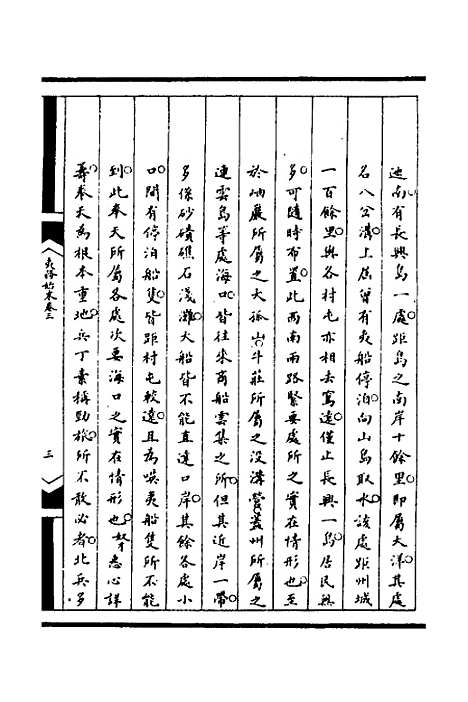 迤南有長興島一處距島之南岸十餘里即屬大洋其處
名八岔溝上居曾有夷船停泊向山島取水該處距州城
一百餘里與各村屯亦相去寫遠僅止長興一島居民無
多可隨時布置此西南兩路緊要處所之實在情形也至
於岫巖所屬之大孤山斗莊所屬之沒溝營蓋州所屬之
連雲島等處海口皆往來商船雲集之所但其近岸一帶
多係砂磧礁石淺灘大船皆不能直達口岸其餘各處小
口間有停泊船隻皆距村屯較遠且為𠸄夷船隻所不能
到此奉天所屬各處次要海口之實在情形也奴才悉心詳
籌奉天為根本重地兵丁素稱勁旅所不敢必者北兵多
夷務始末卷三
三